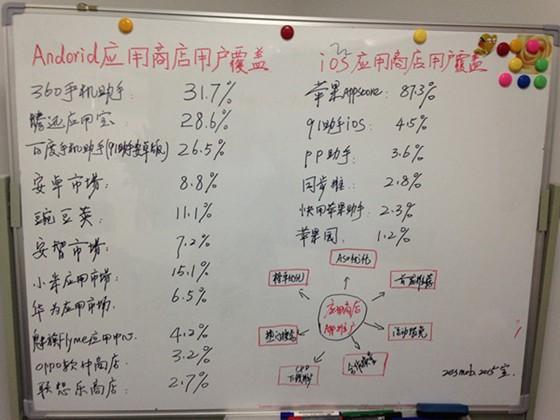 Andorid应用商店用户覆盖
360手机助手: 31.7%
腾讯应用宝: 28.6%
百度手机助手(91助手安卓版) 26.5%
安卓市场: 8.8%
豌豆荚: 11.1%
安智市场: 7.2%
小米应用市场: 15.1%
华为应用市场. 6.5%
魅族Flyme应用中心. 4.2%
oppo软件商店: 3.2%
联想乐商店: 2.7%
iOS应用商店用户覆盖
苹果Appscore: 87.3%
91助手iOS: 4.5%
pp助手: 3.6%
同步推: 2.8%
快用苹果助手: 2.3%
苹果园: 1.2%
ASO优化
榜单优化
首发推荐
应用商店
推广
热门搜索
活动专题
CPD
下载